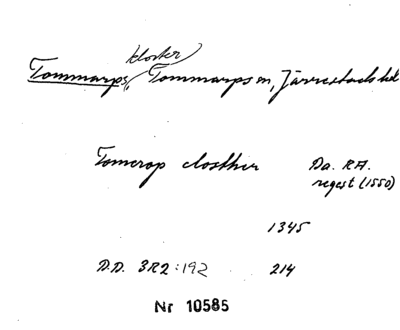 kloster
Tommarps, Tommarps sn, Järrestads hd
Tomerop closther Da. RA.
regest (1550)
1345
D.D. 3R2:192 214
Nr 10585